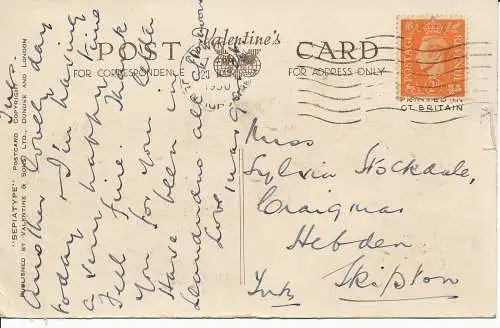 Valentine's
POST CARD
FOR CORRESPONDENCE
FOR ADDRESS ONLY
PRINTED IN
GT. BRITAIN
"SEPIATYPE" POSTCARD COPYRIGHT
PUBLISHED BY VALENTINE & SONS LTD., DUNDEE AND LONDON
POSTAGE
1950
Tues.
Another lovely day
today - I'm having
a very happy time
Feel fine. Thank
you for your letter
Have been in
Llandudno all
Love,
Miss
Sylvia Stockdale,
Craigmas
Hebden
Skipton
Yorks